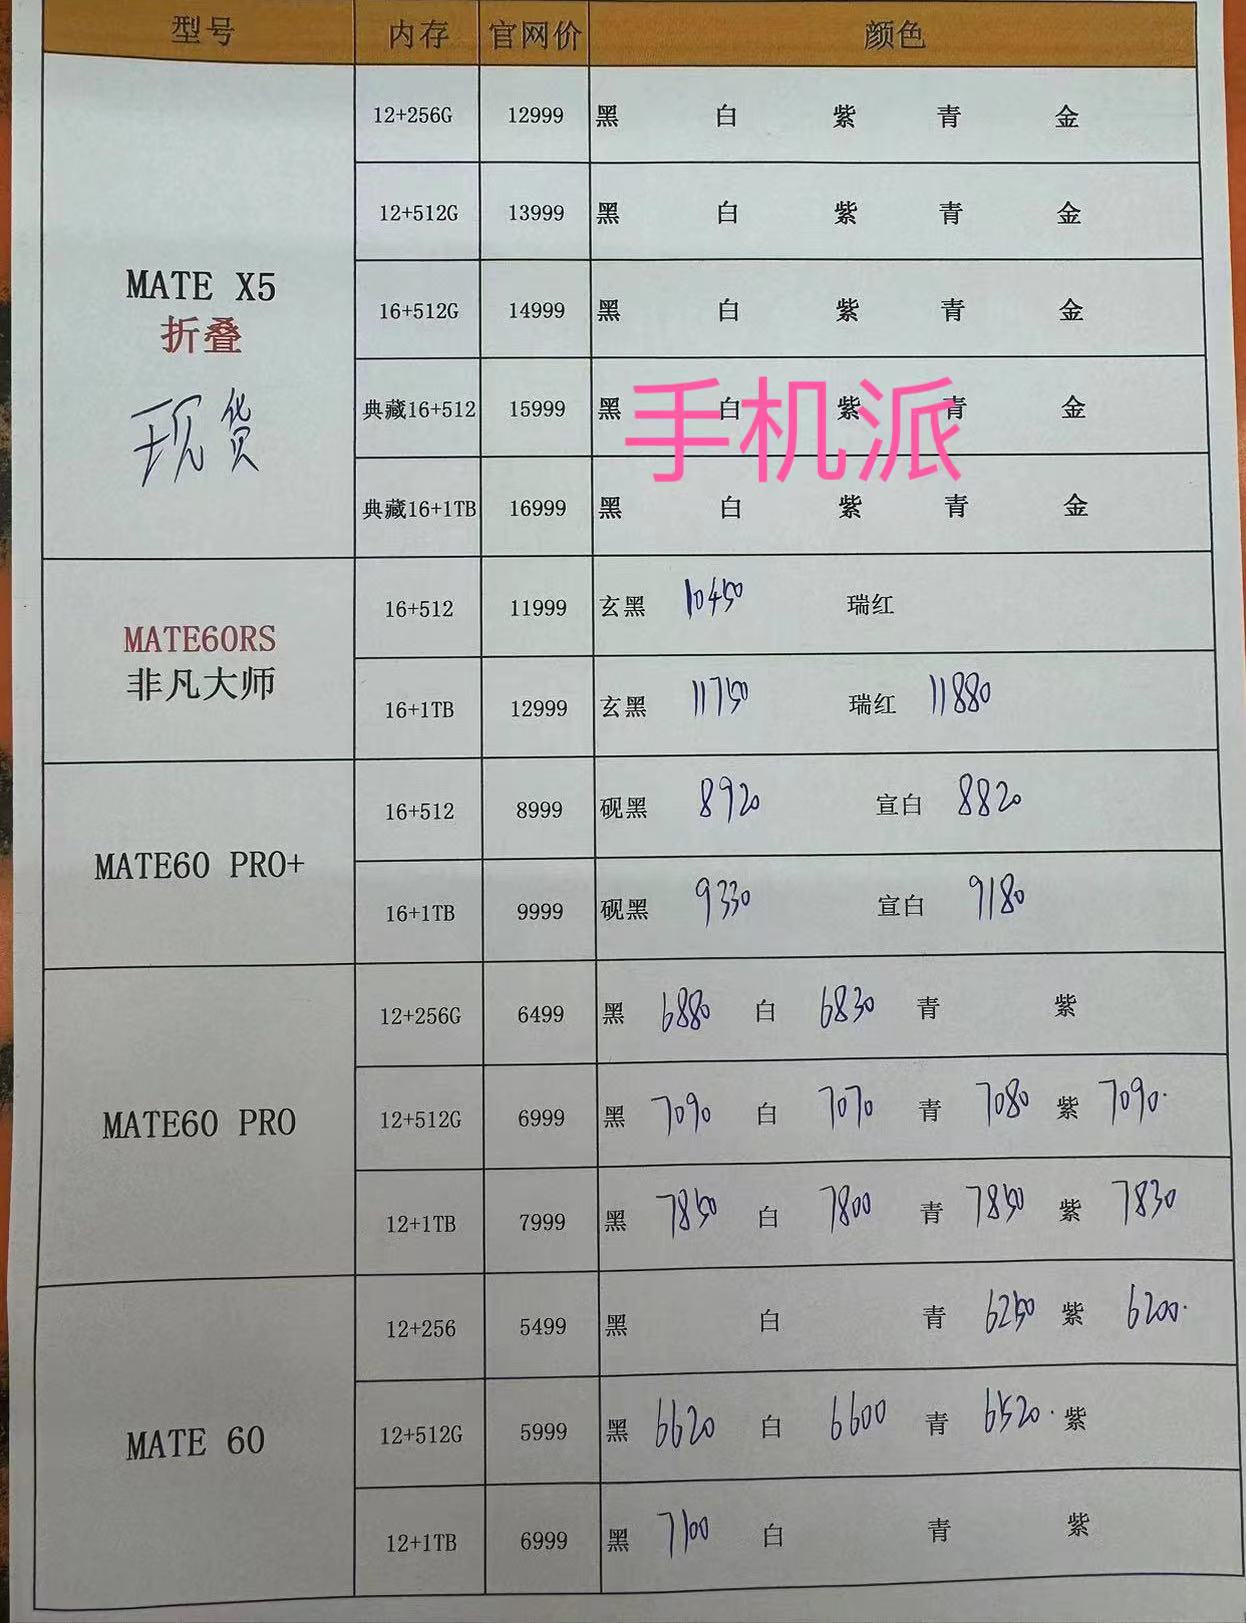 型号 内存 官网价 颜色
MATE X5
折叠
现货
12+256G 12999 黑 白 紫 青 金
12+512G 13999 黑 白 紫 青 金
16+512G 14999 黑 白 紫 青 金
典藏16+512 15999 黑 白 紫 青 金
手机派
典藏16+1TB 16999 黑 白 紫 青 金
MATE60RS
非凡大师
16+512 11999 玄黑 10450 瑞红
16+1TB 12999 玄黑 11750 瑞红 11880
MATE60 PRO+
16+512 8999 砚黑 8920 宣白 8820
16+1TB 9999 砚黑 9330 宣白 9180
MATE60 PRO
12+256G 6499 黑 6880 白 6830 青 紫
12+512G 6999 黑 7090 白 7070 青 7080 紫 7090.
12+1TB 7999 黑 7850 白 7800 青 7850 紫 7830
MATE 60
12+256 5499 黑 白 青 6250 紫 6200.
12+512G 5999 黑 6620 白 6600 青 6520. 紫
12+1TB 6999 黑 7100 白 青 紫